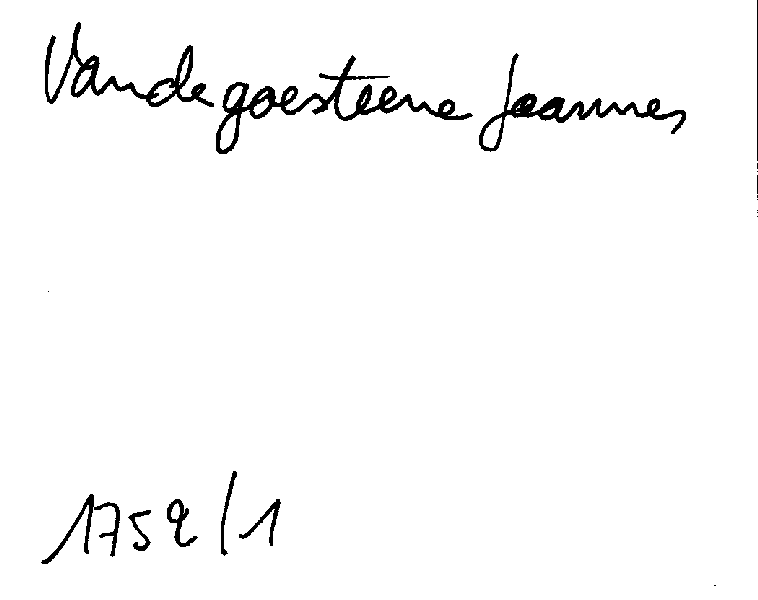 Vandegoesteene Joannes
1752/1